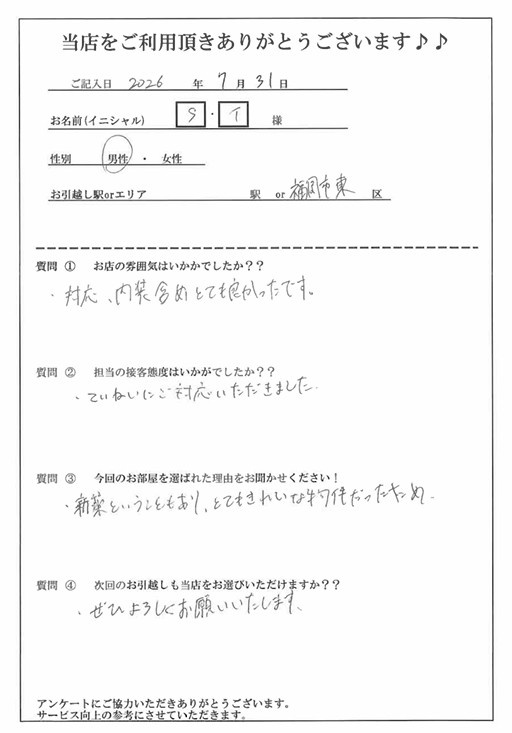 当店をご利用頂きありがとうございます♪♪
ご記入日 2026 年 7 月 31 日
お名前(イニシャル) S ・ T 様
性別 男性 ・ 女性
お引越し駅orエリア 駅 or 福岡市東 区
質問 ① お店の雰囲気はいかかでしたか？？
・対応、内装含めとても良かったです。
質問 ② 担当の接客態度はいかがでしたか？？
・ていねいにご対応いただきました.
質問 ③ 今回のお部屋を選ばれた理由をお聞かせください！
・新築ということもあり、とてもきれいな物件だったため.
質問 ④ 次回のお引越しも当店をお選びいただけますか？？
・ぜひよろしくお願いいたします、
アンケートにご協力いただきありがとうございます。
サービス向上の参考にさせていただきます。